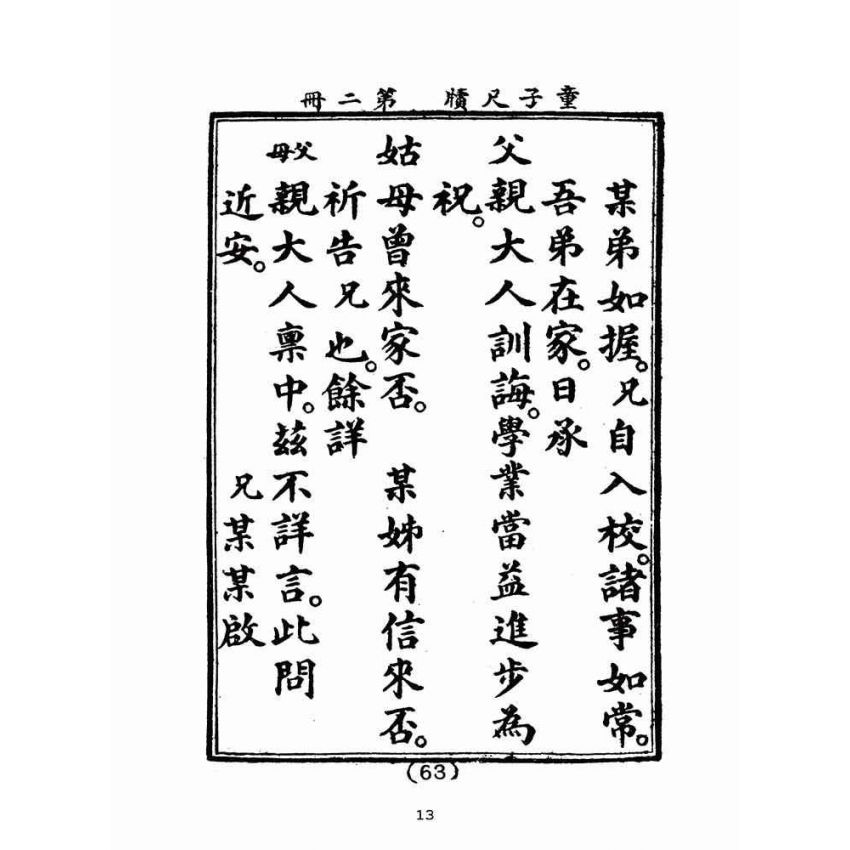 童子尺牘　第二冊
某弟如握。兄自入校。諸事如常。
吾弟在家。日承
父親大人訓誨。學業當益進步為
祝。
姑母曾來家否。　某姊有信來否。
祈告兄也。餘詳
父母親大人稟中。茲不詳言。此問
近安。　兄某某啟
(63)
13